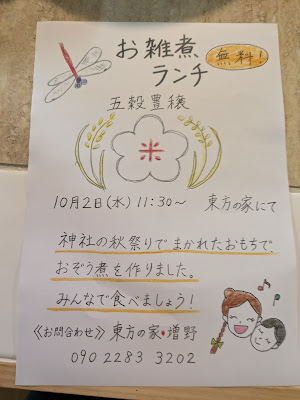 お雑煮
ランチ
無料!
五穀豊穣
米
10月2日(水) 11:30～ 東方の家にて
神社の秋祭りでまかれたおもちで、
おぞう煮を作りました。
みんなで食べましょう!
《お問合わせ》東方の家・増野
090 2283 3202